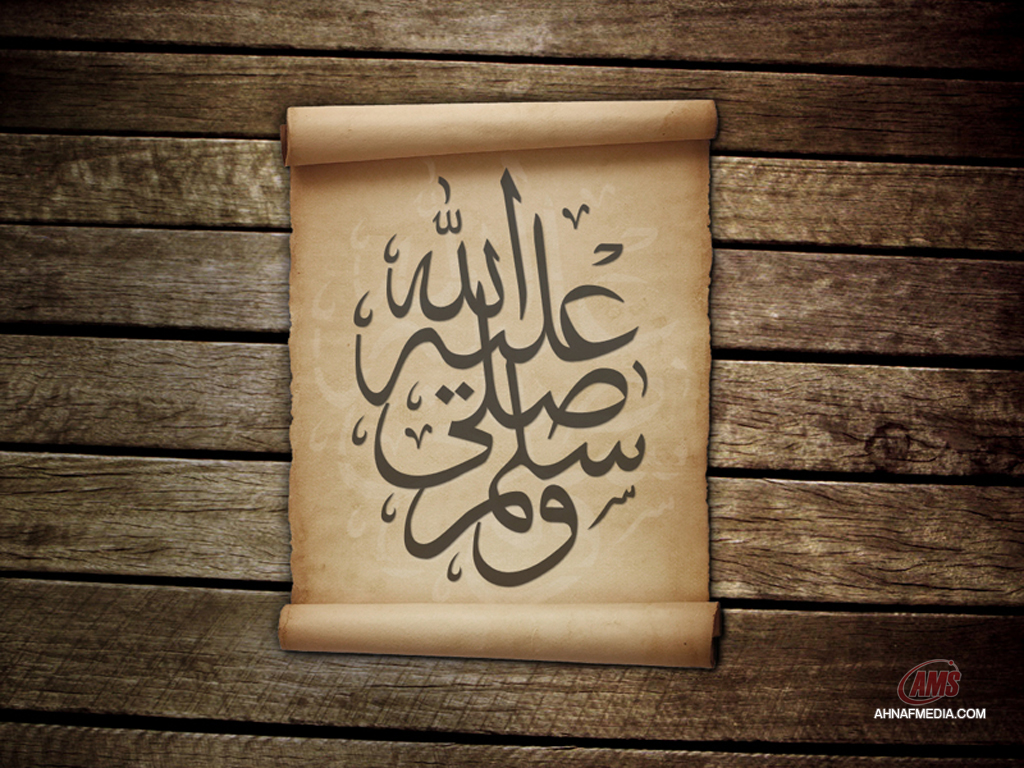 صلى الله عليه وسلم
AMS
AHNAFMEDIA.COM